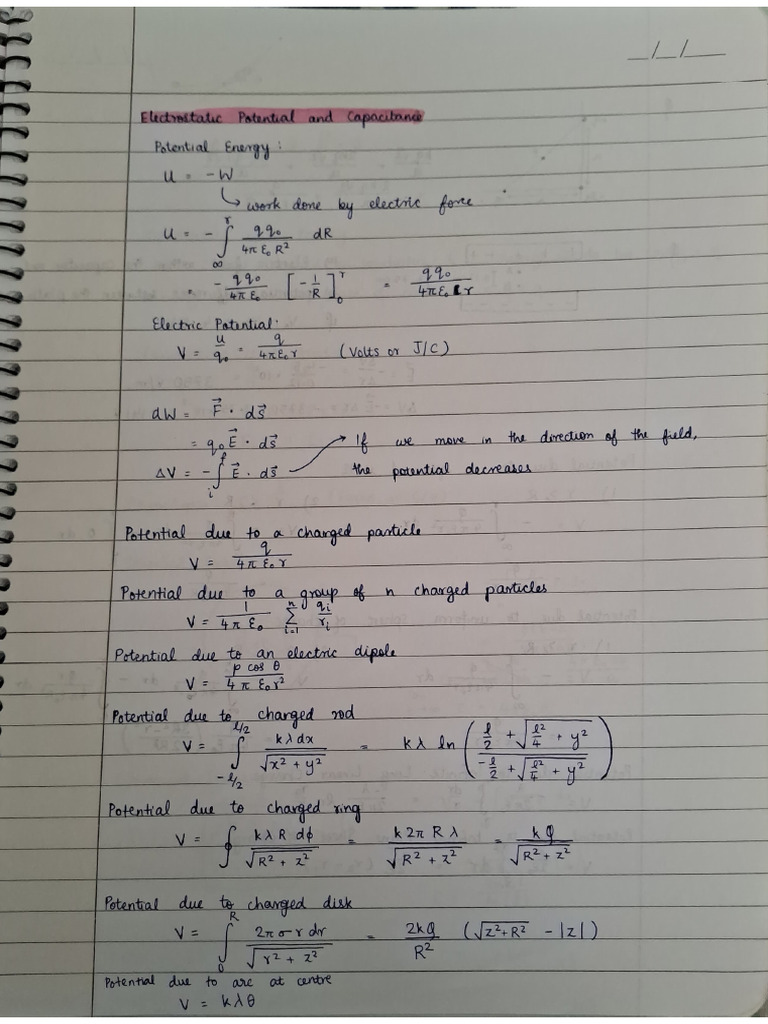 _/_/__
Electrostatic Potential and Capacitance
Potential Energy :
U = -W
↳ work done by electric force
U = - ∫_∞^r qq₀/(4πε₀R²) dR
= -qq₀/(4πε₀) [-1/R]₀^r = qq₀/(4πε₀r)
Electric Potential:
V = U/q₀ = q/(4πε₀r) (Volts or J/C)
dW = F⃗ · ds⃗
= q₀E⃗ · ds⃗ → If we move in the direction of the field,
ΔV = -∫_i^f E⃗ · ds⃗ the potential decreases
Potential due to a charged particle
V = q/(4πε₀r)
Potential due to a group of n charged particles
V = 1/(4πε₀) Σ_{i=1}^n qᵢ/rᵢ
Potential due to an electric dipole
V = p cos θ/(4πε₀r²)
Potential due to charged rod
V = ∫_{-l/2}^{l/2} kλdx/√(x² + y²) = kλ ln((l/2 + √(l²/4 + y²))/(-l/2 + √(l²/4 + y²)))
Potential due to charged ring
V = ∮ kλR dϕ/√(R² + z²) = k2πRλ/√(R² + z²) = kQ/√(R² + z²)
Potential due to charged disk
V = ∫_0^R 2πσr dr/√(r² + z²) = 2kQ/R² (√(z²+R²) - |z|)
Potential due to arc at centre
V = kλθ